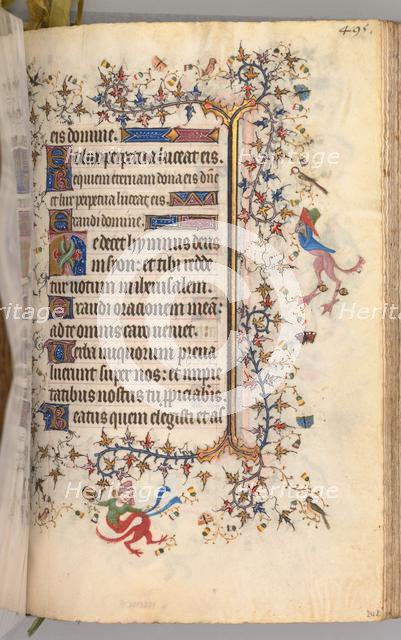 495.
eis domine.
Et lux perpetua luceat eis.
Requiem eternam dona eis dñe
et lux perpetua luceat eis.
Exaudi domine.
Te decet hymnus deus
in syon: et tibi redde
tur votum in iherusalem.
Exaudi orationem meã:
ad te omnis caro veniet.
Verba iniquorum preva
luerunt super nos: et impie
tatibus nostris tu ppiciabis.
Beatus quem elegisti et as
Heritage
Images
Heritage
Images
Heritage
Images
242